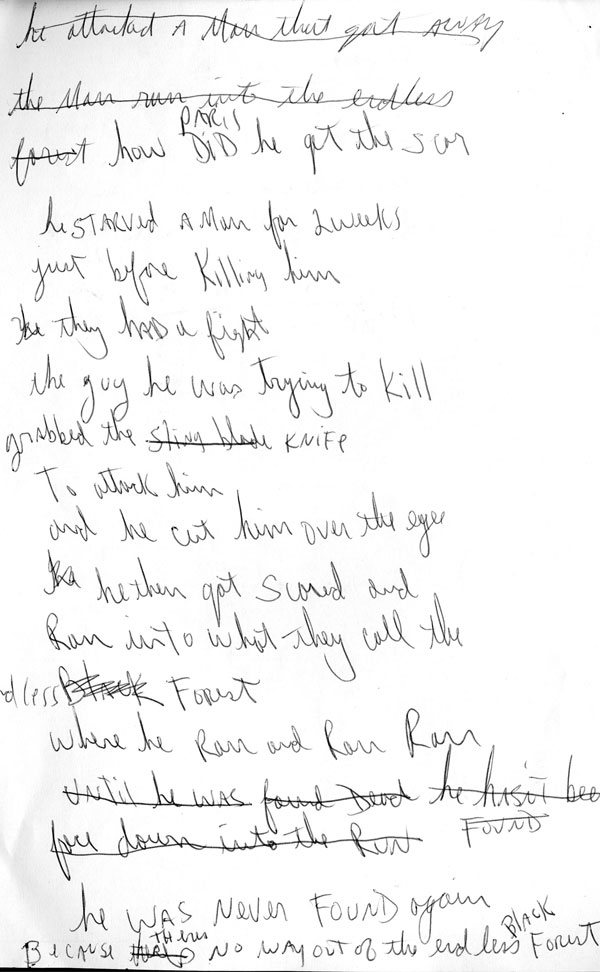 he attacked A Man that got AWAY
the Man run into the endless
PARIS
forest how DiD he get the scar
he STARVED A Man for 2 weeks
just before Killing him
they HAD a fight
the guy he was trying to Kill
grabbed the blade KNIFE
To attack him
and he cut him over the eye
he then got Scared and
Ran into what they call the
dless Black Forest
where he Ran and Ran Ran
UNTiL he WAS found Dead he hASiT bee
face down into the RUN FOUND
he WAS NEVER FOUND again
THERES BLACK
BECAUSE NO WAY OUT OF the endless Forest